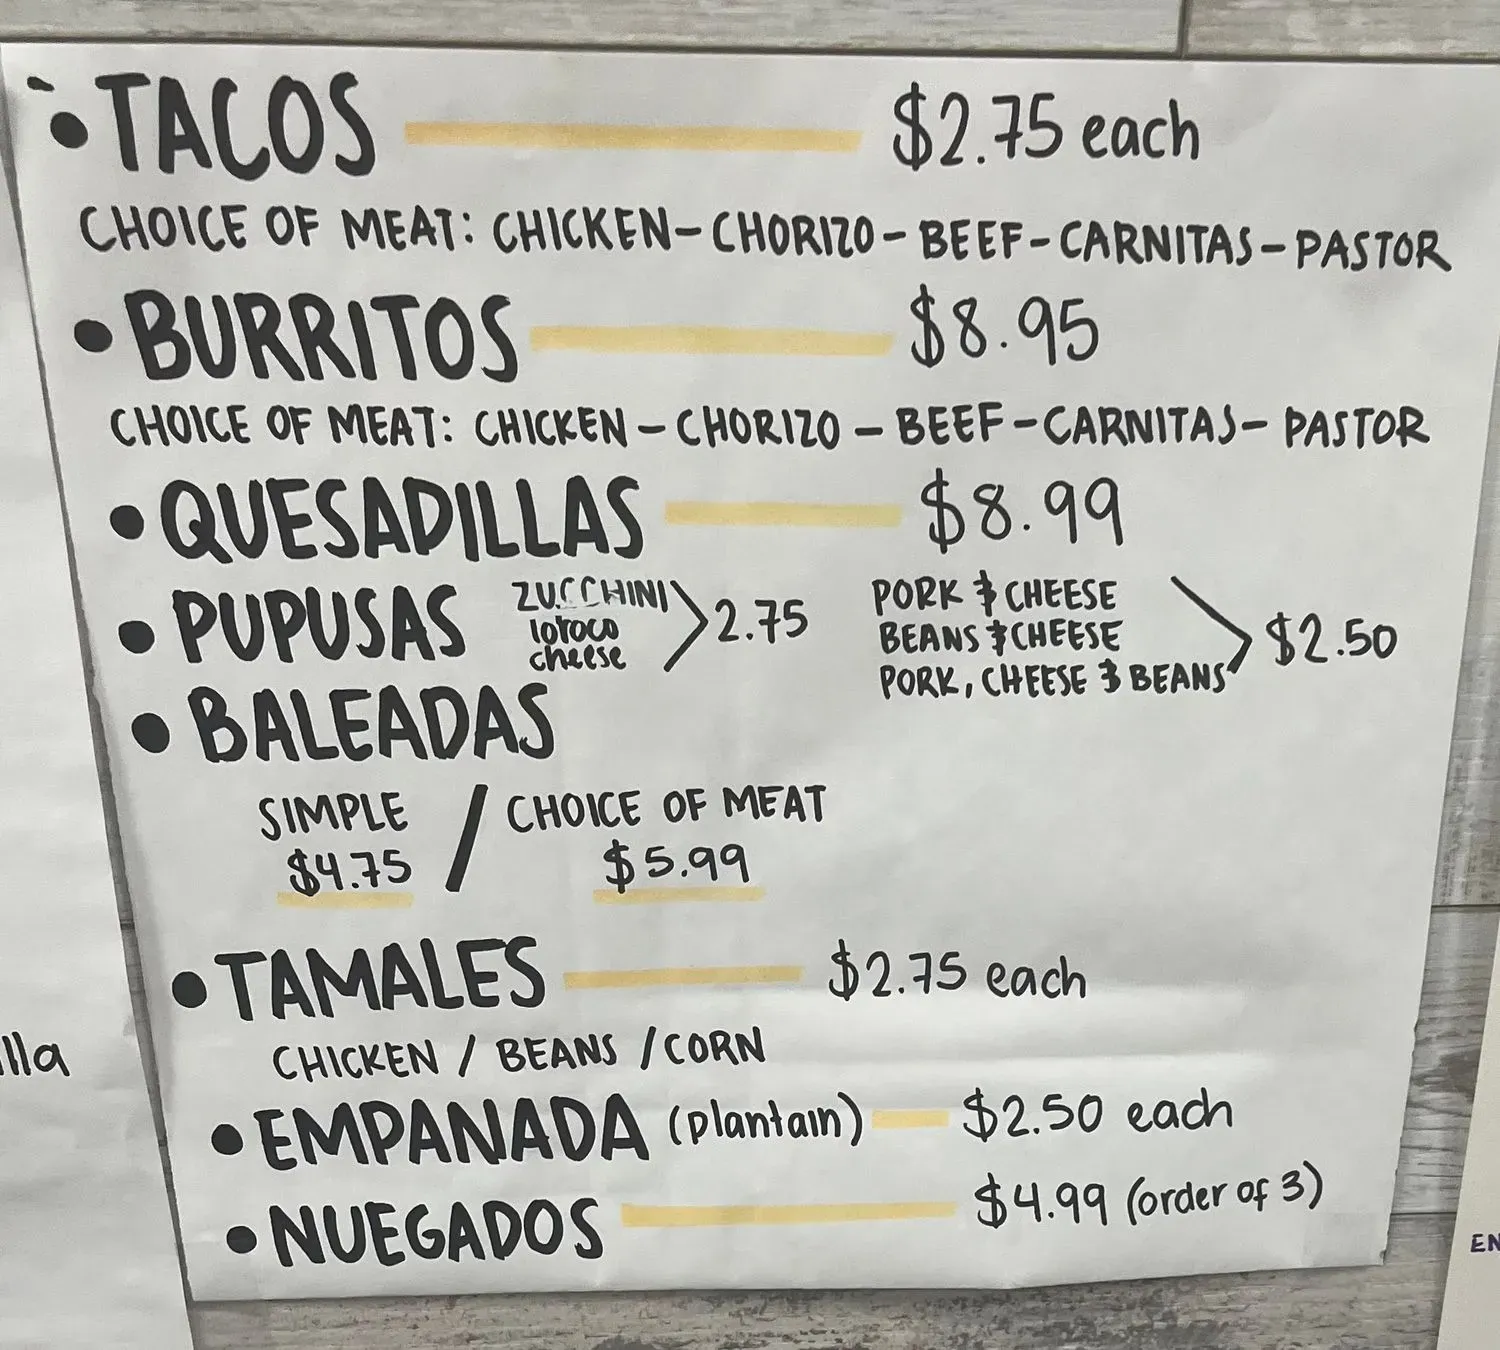 • TACOS $2.75 each
CHOICE OF MEAT: CHICKEN-CHORIZO-BEEF-CARNITAS-PASTOR
• BURRITOS $8.95
CHOICE OF MEAT: CHICKEN-CHORIZO-BEEF-CARNITAS-PASTOR
• QUESADILLAS $8.99
• PUPUSAS
ZUCCHINI
loroco
cheese
2.75
PORK & CHEESE
BEANS & CHEESE
PORK, CHEESE & BEANS
$2.50
• BALEADAS
SIMPLE / CHOICE OF MEAT
$4.75 $5.99
• TAMALES $2.75 each
CHICKEN / BEANS / CORN
• EMPANADA (plantain) $2.50 each
• NUEGADOS $4.99 (order of 3)